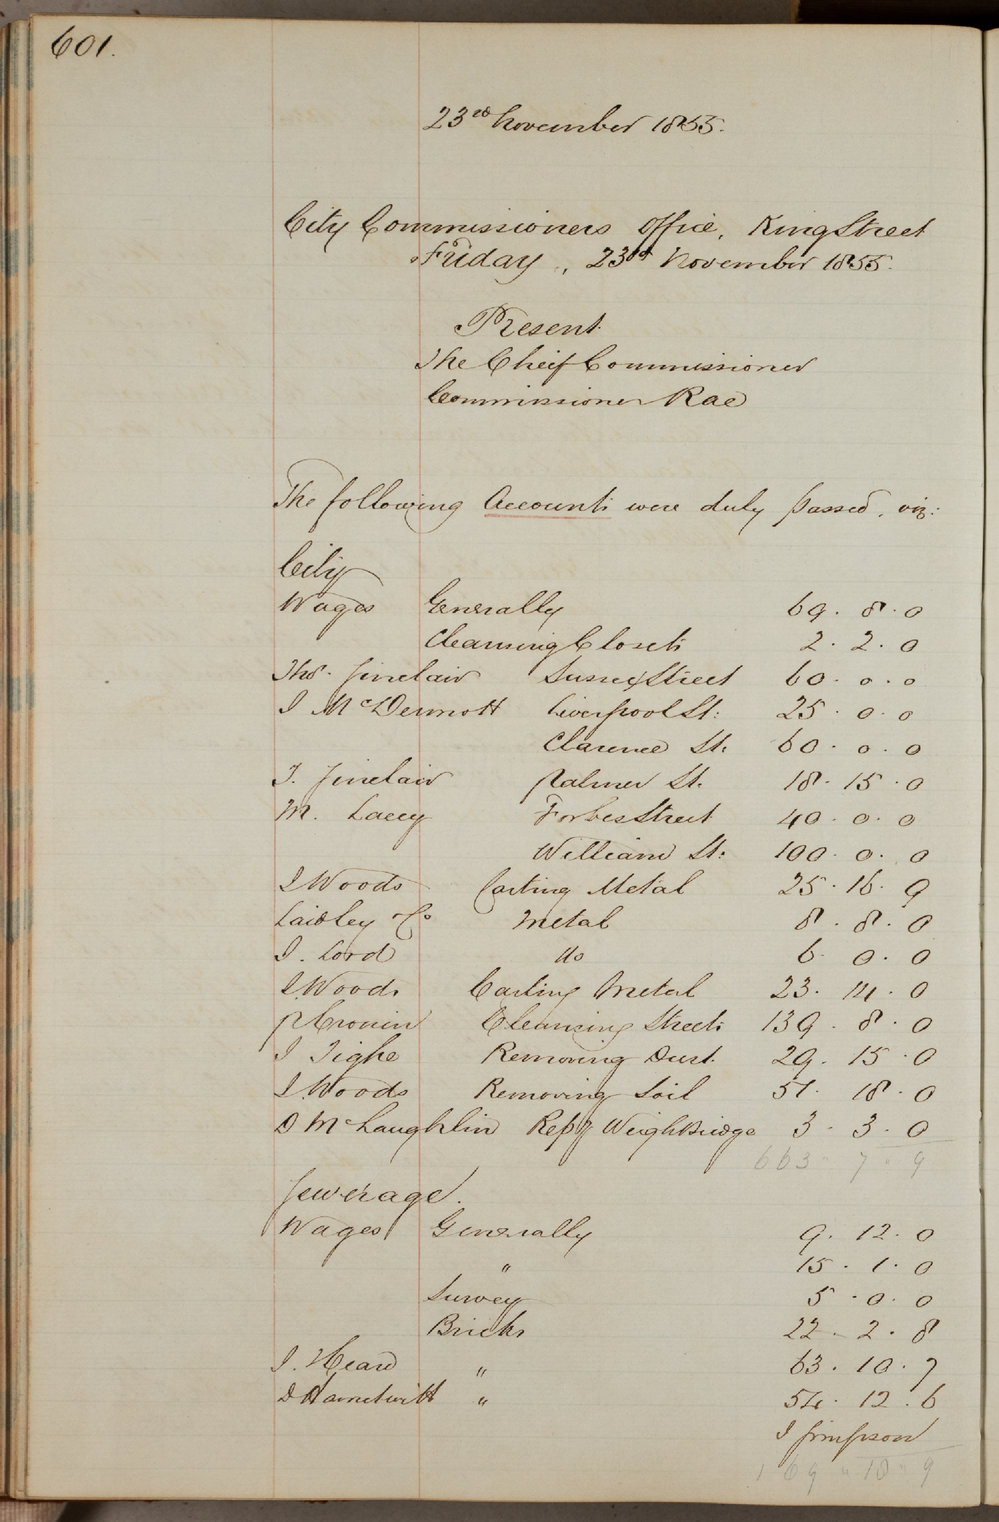 601.
23rd November 1855.
City Commissioners Office, King Street
Friday, 23rd November 1855.
Present
The Cheif Commissioner
Commissioner Rae
The following Accounts were duly passed, viz:
City
Wages Generally 69. 8. 0
Cleansing Closets 2. 2. 0
Thos. Sinclair Sussex Street 60. 0. 0
J McDermott Liverpool St: 25. 0. 0
Clarence St. 60. 0. 0
T. Sinclair Palmer St. 18. 15. 0
M. Lacey Forbes Street 40. 0. 0
William St: 100. 0. 0
J Woods Carting Metal 25. 16. 9
Laidley & Co Metal 8. 8. 0
J. Lord do 6. 0. 0
J. Woods Carting Metal 23. 14. 0
P Cronin Cleansing Streets 139. 8. 0
J Tighe Removing Dust. 29. 15. 0
J. Woods Removing Soil 51. 18. 0
D McLaughlin Repg Weigh Bridge 3. 3. 0
663 " 7 " 9
Sewerage.
Wages Generally 9. 12. 0
" 15. 1. 0
Survey 5. 0. 0
Bricks 22. 2. 8
J. Heard " 63. 10. 7
D " 54. 12. 6
J Simpson
169 " 18 " 9